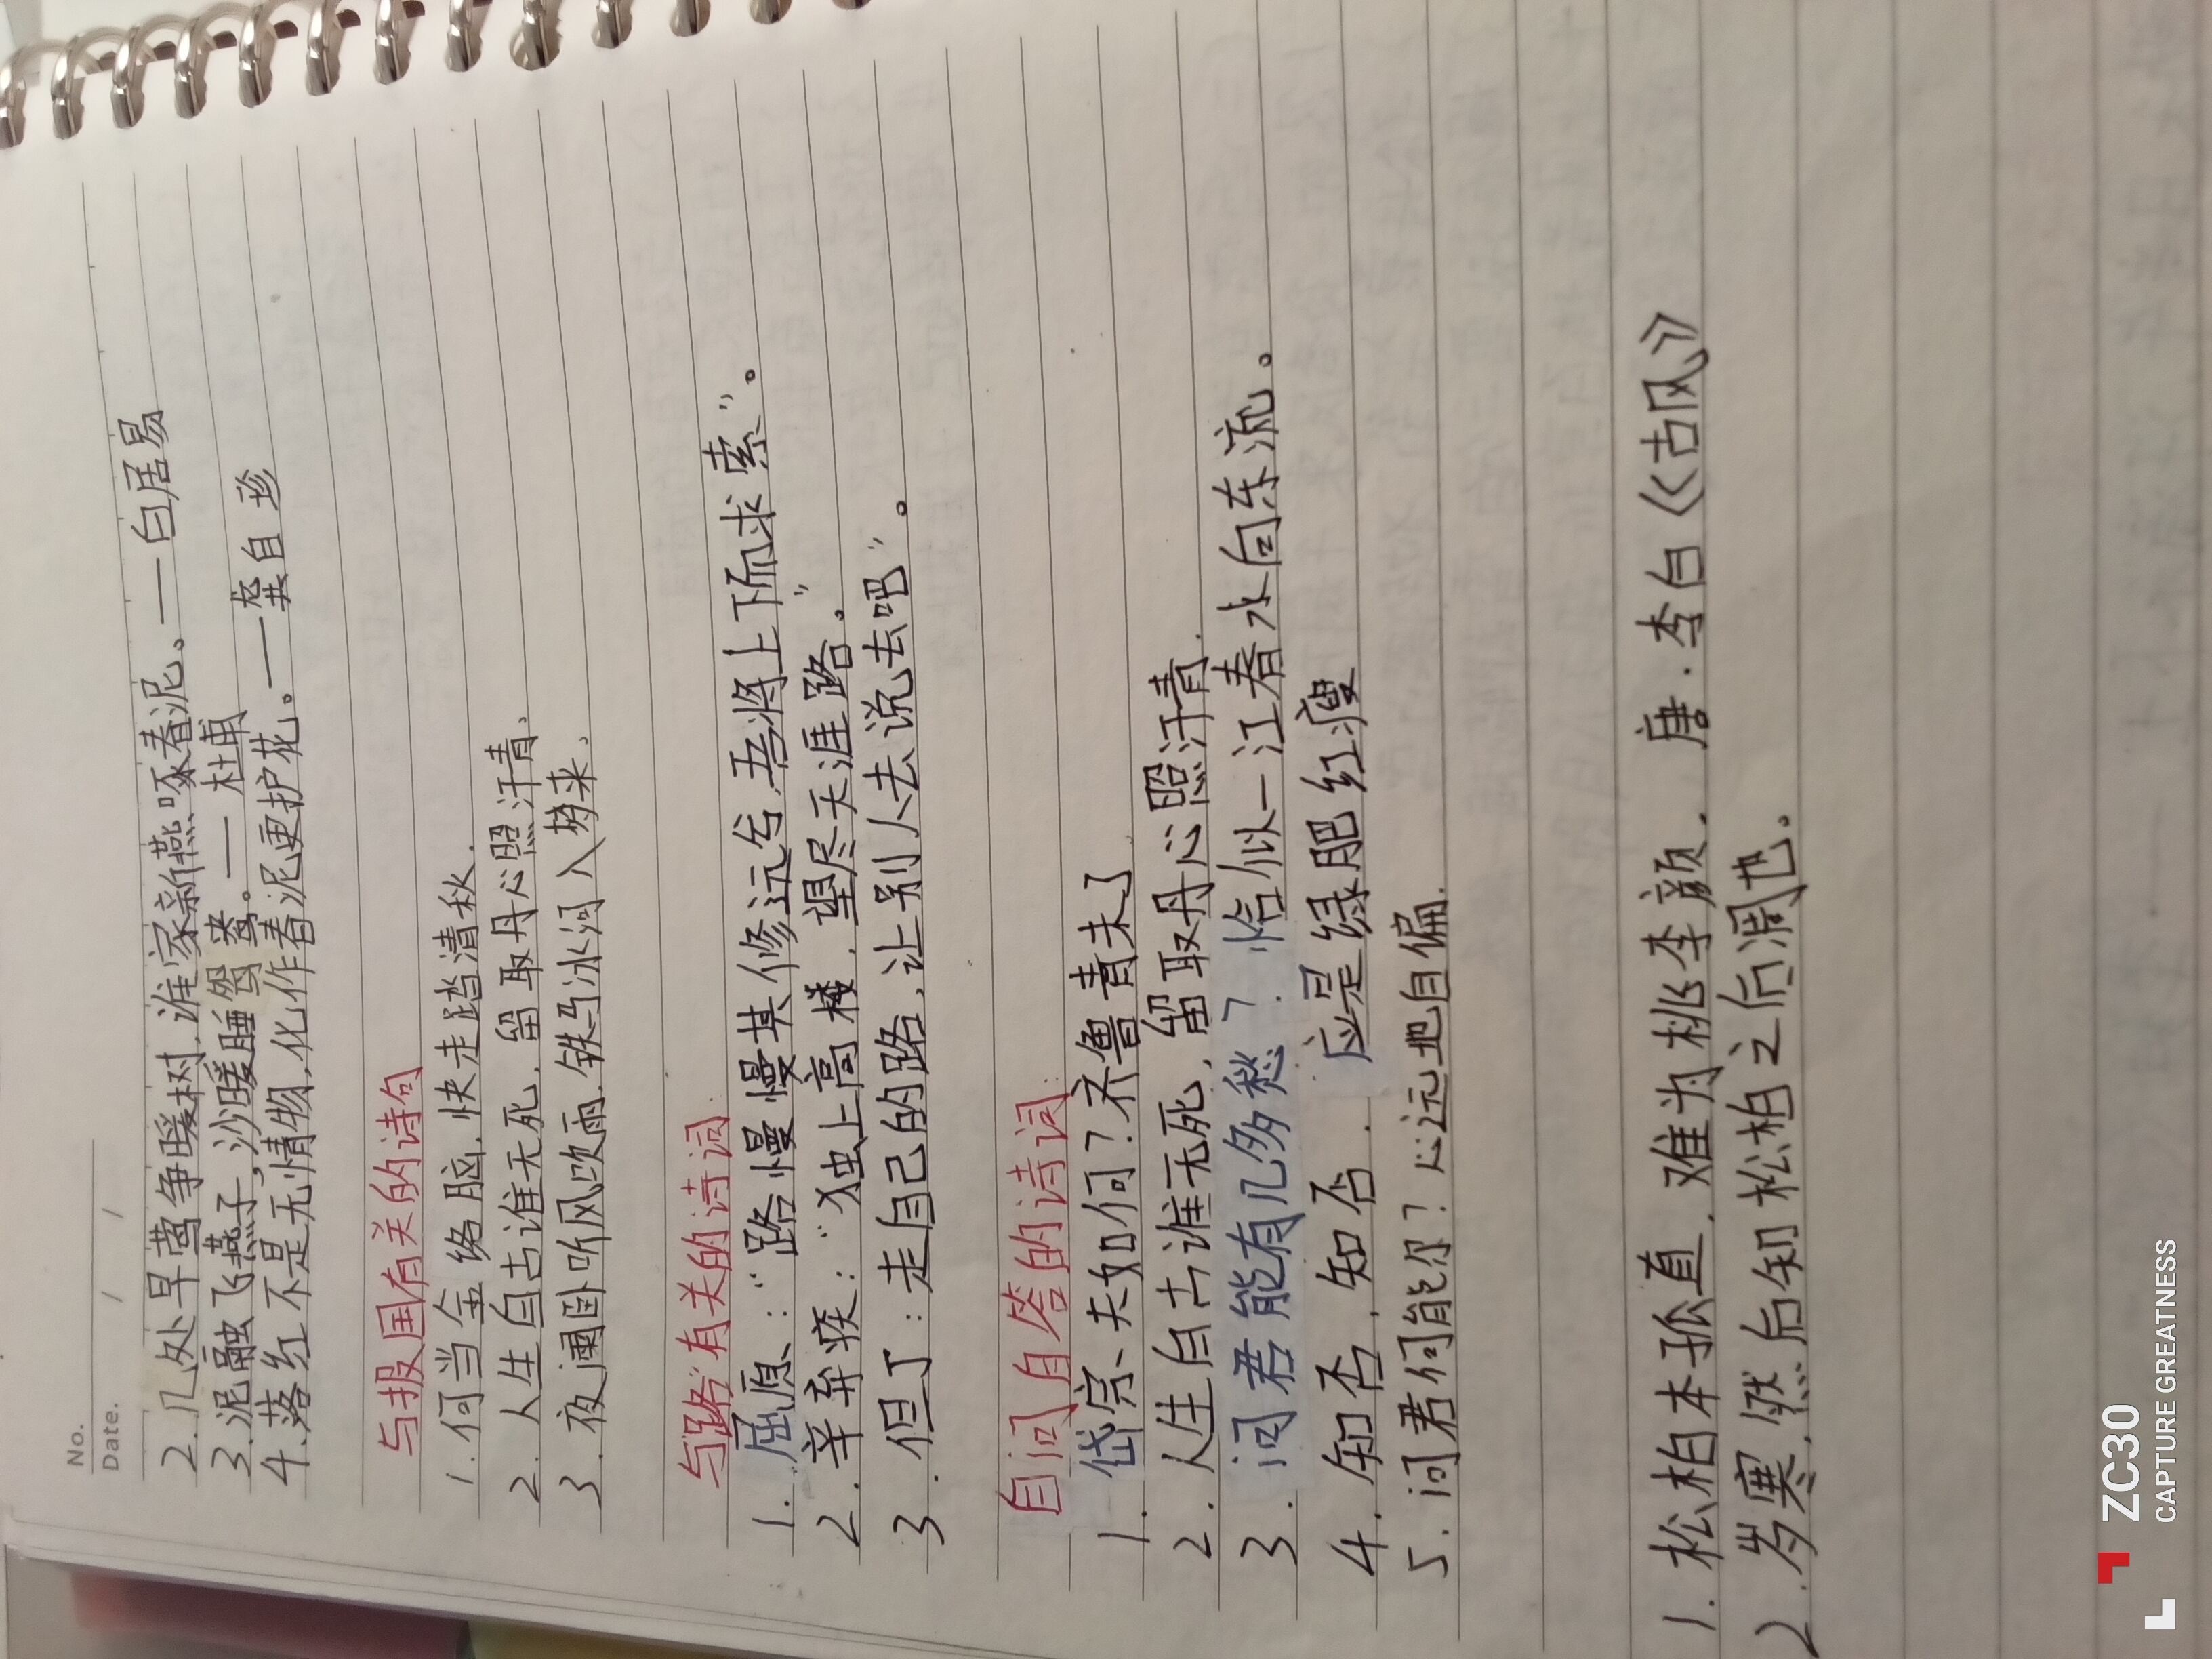 No.
Date. / /
2.几处早莺争暖树,谁家新燕啄春泥。——白居易
3.泥融飞燕子,沙暖睡鸳鸯。——杜甫
4.落红不是无情物,化作春泥更护花。——龚自珍
与报国有关的诗句
1.何当金络脑,快走踏清秋.
2.人生自古谁无死,留取丹心照汗青、
3.夜阑卧听风吹雨,铁马冰河入梦来、
与"路"有关的诗词.
1.屈原:"路慢慢其修远兮,吾将上下而求索"。
2.辛弃疾:"独上高楼,望尽天涯路。"
3.但丁:走自己的路,让别人去说去吧"。
自问自答的诗词.
1.岱宗夫如何?齐鲁青未了.
2.人生自古谁无死,留取丹心照汗青.
3.问君能有几多愁?恰似一江春水向东流。
4.知否,知否.应是绿肥红瘦
5.问君何能尔?心远地自偏.
1.松柏本孤直,难为桃李颜.唐·李白《古风》
2.岁寒,然后知松柏之后凋也。
ZC30
CAPTURE GREATNESS